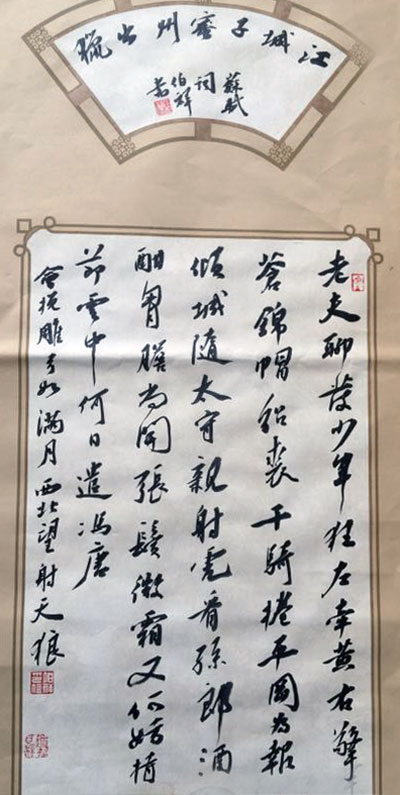 江城子密州出獵
蘇軾
詞
伯祥
書
老夫聊發少年狂左牽黃右擎
蒼錦帽貂裘千騎捲平岡為報
傾城隨太守親射虎看孫郎酒
酣胷膽尚開張鬢微霜又何妨持
節雲中何日遣馮唐
會挽雕弓如滿月西北望射天狼